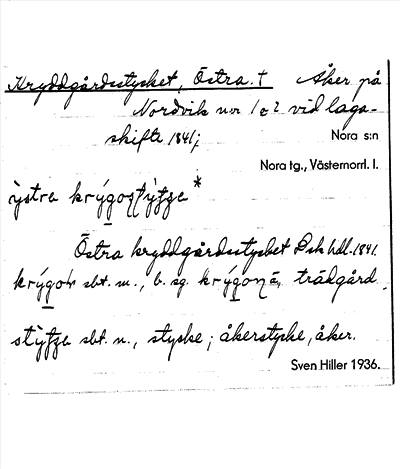 Kryddgårdsstycket, Östra. † Åker på
Nordvik nr 1 o 2 vid laga-
skifte 1841;
Nora s:n
Nora tg., Västernorrl. l.
Östra kryddgårdsstycket Dsk hdl. 1841.
sbt. m., b. sg. trädgård,
sbt. n., stycke; åkerstycke, åker.
Sven Hiller 1936.